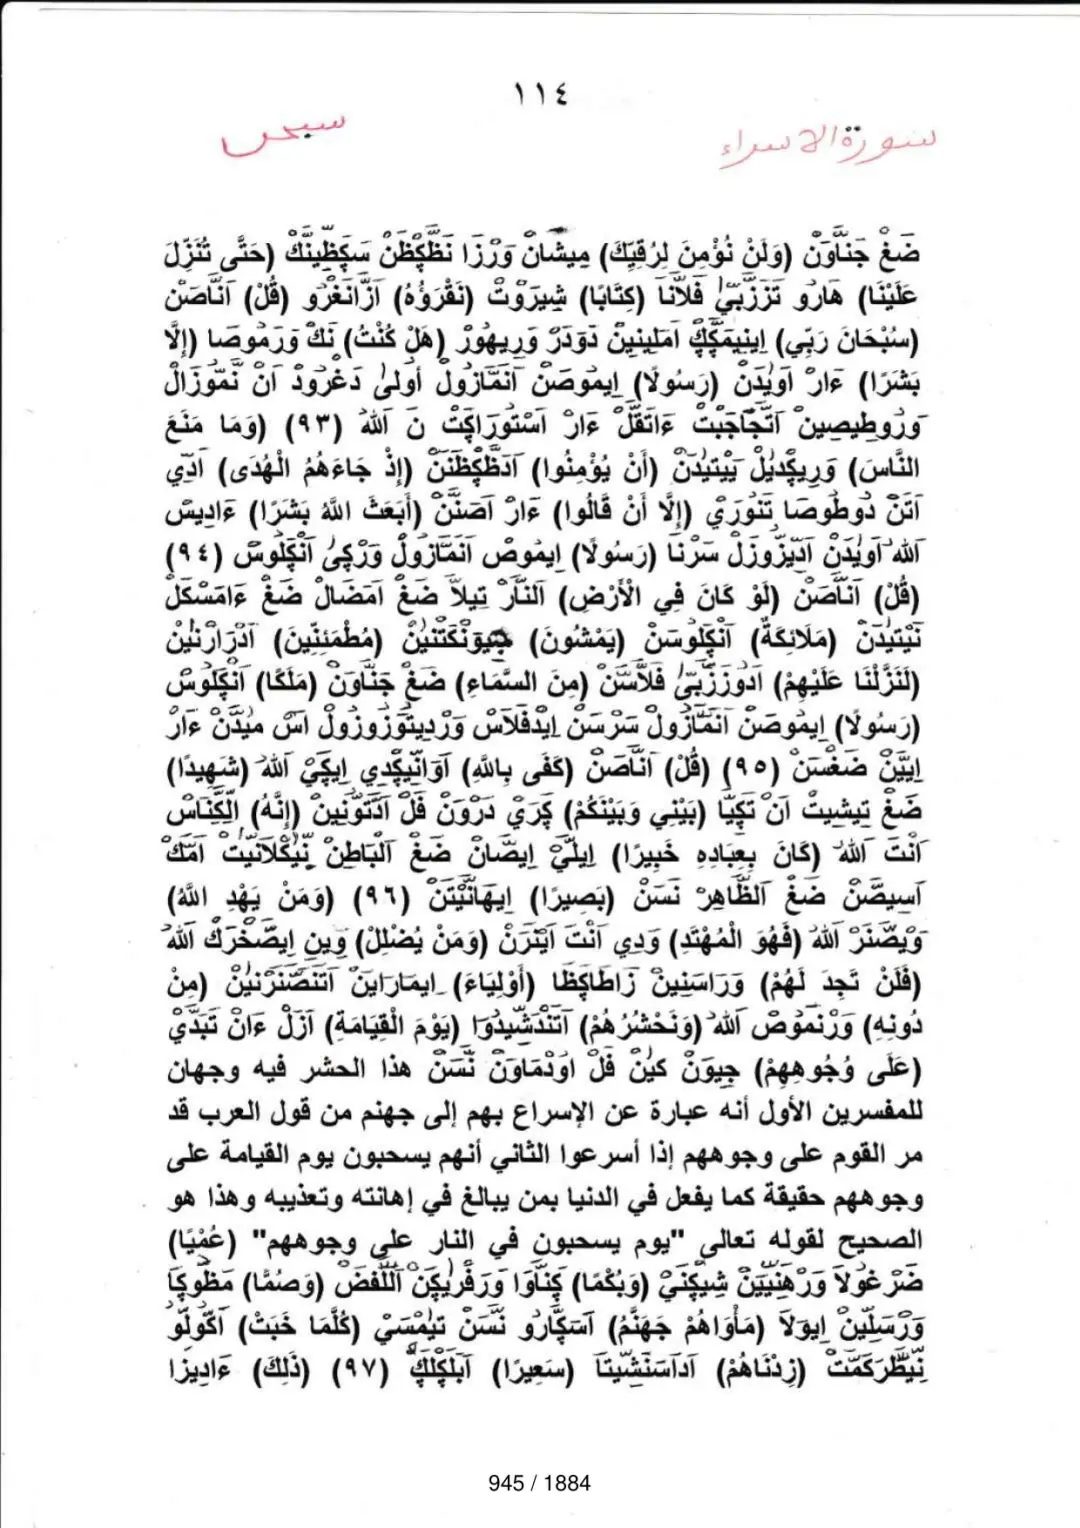 ١١٤
سورة الاسراء
سبحن
ضَغْ جَنَّاوَنْ (وَلَنْ نُؤْمِنَ لِرُقِيِّكَ) مِيشَانْ وَرْزَا نَظَّكِظَنْ سَكِظِّينَّكْ (حَتَّى تُنَزِّلَ
عَلَيْنَا) هَارُو تَزَزَّبِّيْ فَلَّانَا (كِتَابًا) شِيرَوْتْ (نَقْرَؤُهُ) اَزَّانَغْرُو (قُلْ) اَنَّاصَنْ
(سُبْحَانَ رَبِّي) اِينِيمَكِّكْ اَمَلِينِينْ دَوَدَرْ وَرِيهُوَرْ (هَلْ كُنْتُ) نَكْ وَرَمُوصَا (إِلَّا
بَشَرًا) ءَارْ اَوَيْدَنْ (رَسُولًا) اِيمُوصَنْ اَنَمَّازُولْ أُولَىٰ دَغْرُودْ اَنْ نَمُّوزَالْ
وَرُوطِيصِينْ اَتَّجَاجَبْتْ ءَاتَقَّلْ ءَارْ اَسْتُورَاكِتْ نَ اللهُ (٩٣) (وَمَا مَنَعَ
النَّاسَ) وَرِيكْدِيلْ يَيْتِيدَنْ (أَنْ يُؤْمِنُوا) اَدَظَّكِظَنَنْ (إِذْ جَاءَهُمُ الْهُدَى) اَدِي
اَتَنْ دُوطُوصَا تَنُورَيْ (إِلَّا أَنْ قَالُوا) ءَارْ اَصَنَّنْ (أَبَعَثَ اللهُ بَشَرًا) ءَادِيسْ
اللهُ اَوَيْدَنْ اَدِيزُّوزَلْ سَرْنَا (رَسُولًا) اِيمُوصْ اَنَمَّازُولْ وَرْكِىٰ اَنْكِلُوسْ (٩٤)
(قُلْ) اَنَّاصَنْ (لَوْ كَانَ فِي الْأَرْضِ) اَلنَّارْ تِيلَّا ضَغْ اَمَضَالْ ضَغْ ءَامَسْكَلْ
نَيْتِيدَنْ (مَلَائِكَةٌ) اَنْكِلُوسَنْ (يَمْشُونَ) جِيوَنْكَتَنِينْ (مُطْمَئِنِّينَ) اَدْرَارْنِينْ
(لَنَزَّلْنَا عَلَيْهِمْ) اَدُوزَزَّبِّىٰ فَلَّاسَّنْ (مِنَ السَّمَاءِ) ضَغْ جَنَّاوَنْ (مَلَكًا) اَنْكِلُوسْ
(رَسُولًا) اِيمُوصَنْ اَنَمَّازُولْ سَرْسَنْ اِيدْفَلَّاسْ وَرْدِيتَوْزُوزُولْ اَسْ مَيْدَنْ ءَارْ
اِيَيَّنْ ضَغْسَنْ (٩٥) (قُلْ) اَنَّاصَنْ (كَفَى بِاللَّهِ) اَوَانِّيكْدِي اِيكَيْ اللهُ (شَهِيدًا)
ضَغْ تِيشِيتْ اَنْ تَكِيَّا (بَيْنِي وَبَيْنَكُمْ) كِرَيْ دَرْوَنْ فَلْ اَدَّتُونِينْ (إِنَّهُ) اَلِكِّنَاسْ
اَنْتَ اللهُ (كَانَ بِعِبَادِهِ خَبِيرًا) اِيلَيْ اِيصَّانْ ضَغْ اَلْبَاطِنْ نِّيكْلَانِيتْ اَمَكْ
اَسِيصَّنْ ضَغْ اَلظَّاهِرْ نَسَنْ (بَصِيرًا) اِيهَانَّيْتَنْ (٩٦) (وَمَنْ يَهْدِ اللَّهُ)
وَيْصَنَرْ اللهُ (فَهُوَ الْمُهْتَدِ) وَدِي اَنْتَ اَيَنَرَنْ (وَمَنْ يُضْلِلْ) وَيِنْ اِيصَّخْرَكْ اللهُ
(فَلَنْ تَجِدَ لَهُمْ) وَرَاسَنِينْ زَاطَاكِظَا (أَوْلِيَاءَ) اِيمَارَايَنْ اَتَنَصَّنَرْنِينْ (مِنْ
دُونِهِ) وَرْنَمُوصْ اللهُ (وَنَحْشُرُهُمْ) اَتَنْدَشَّيدُوَا (يَوْمَ الْقِيَامَةِ) اَزَلْ ءَانْ تَبَدَّيْ
(عَلَى وُجُوهِهِمْ) جِيوَنْ كَيْنْ فَلْ اَوْدْمَاوَنْ نَّسَنْ هذا الحشر فيه وجهان
للمفسرين الأول أنه عبارة عن الإسراع بهم إلى جهنم من قول العرب قد
مر القوم على وجوههم إذا أسرعوا الثاني أنهم يسحبون يوم القيامة على
وجوههم حقيقة كما يفعل في الدنيا بمن يبالغ في إهانته وتعذيبه وهذا هو
الصحيح لقوله تعالى "يوم يسحبون في النار على وجوههم" (عُمْيًا)
ضَرْغُولَا وَرْهَنِّيَّيْنْ شِيكَنَيْ (وَبُكْمًا) كِنَاوَا وَرَفْرِيكِنْ اَللَّفَضْ (وَصُمًّا) مَظُوكِا
وَرْسَلِّينْ اِيوَلَا (مَأْوَاهُمْ جَهَنَّمُ) اَسَكَّارُو نَسَّنْ تَيْمَسَيْ (كُلَّمَا خَبَتْ) اَكُّولَوْ
نِّيطَّرَكَمَّتْ (زِدْنَاهُمْ) اَدَاسَنَشِّيتَا (سَعِيرًا) اَبَلَكِلَكِ (٩٧) (ذَلِكَ) ءَادِيزَا
945 / 1884